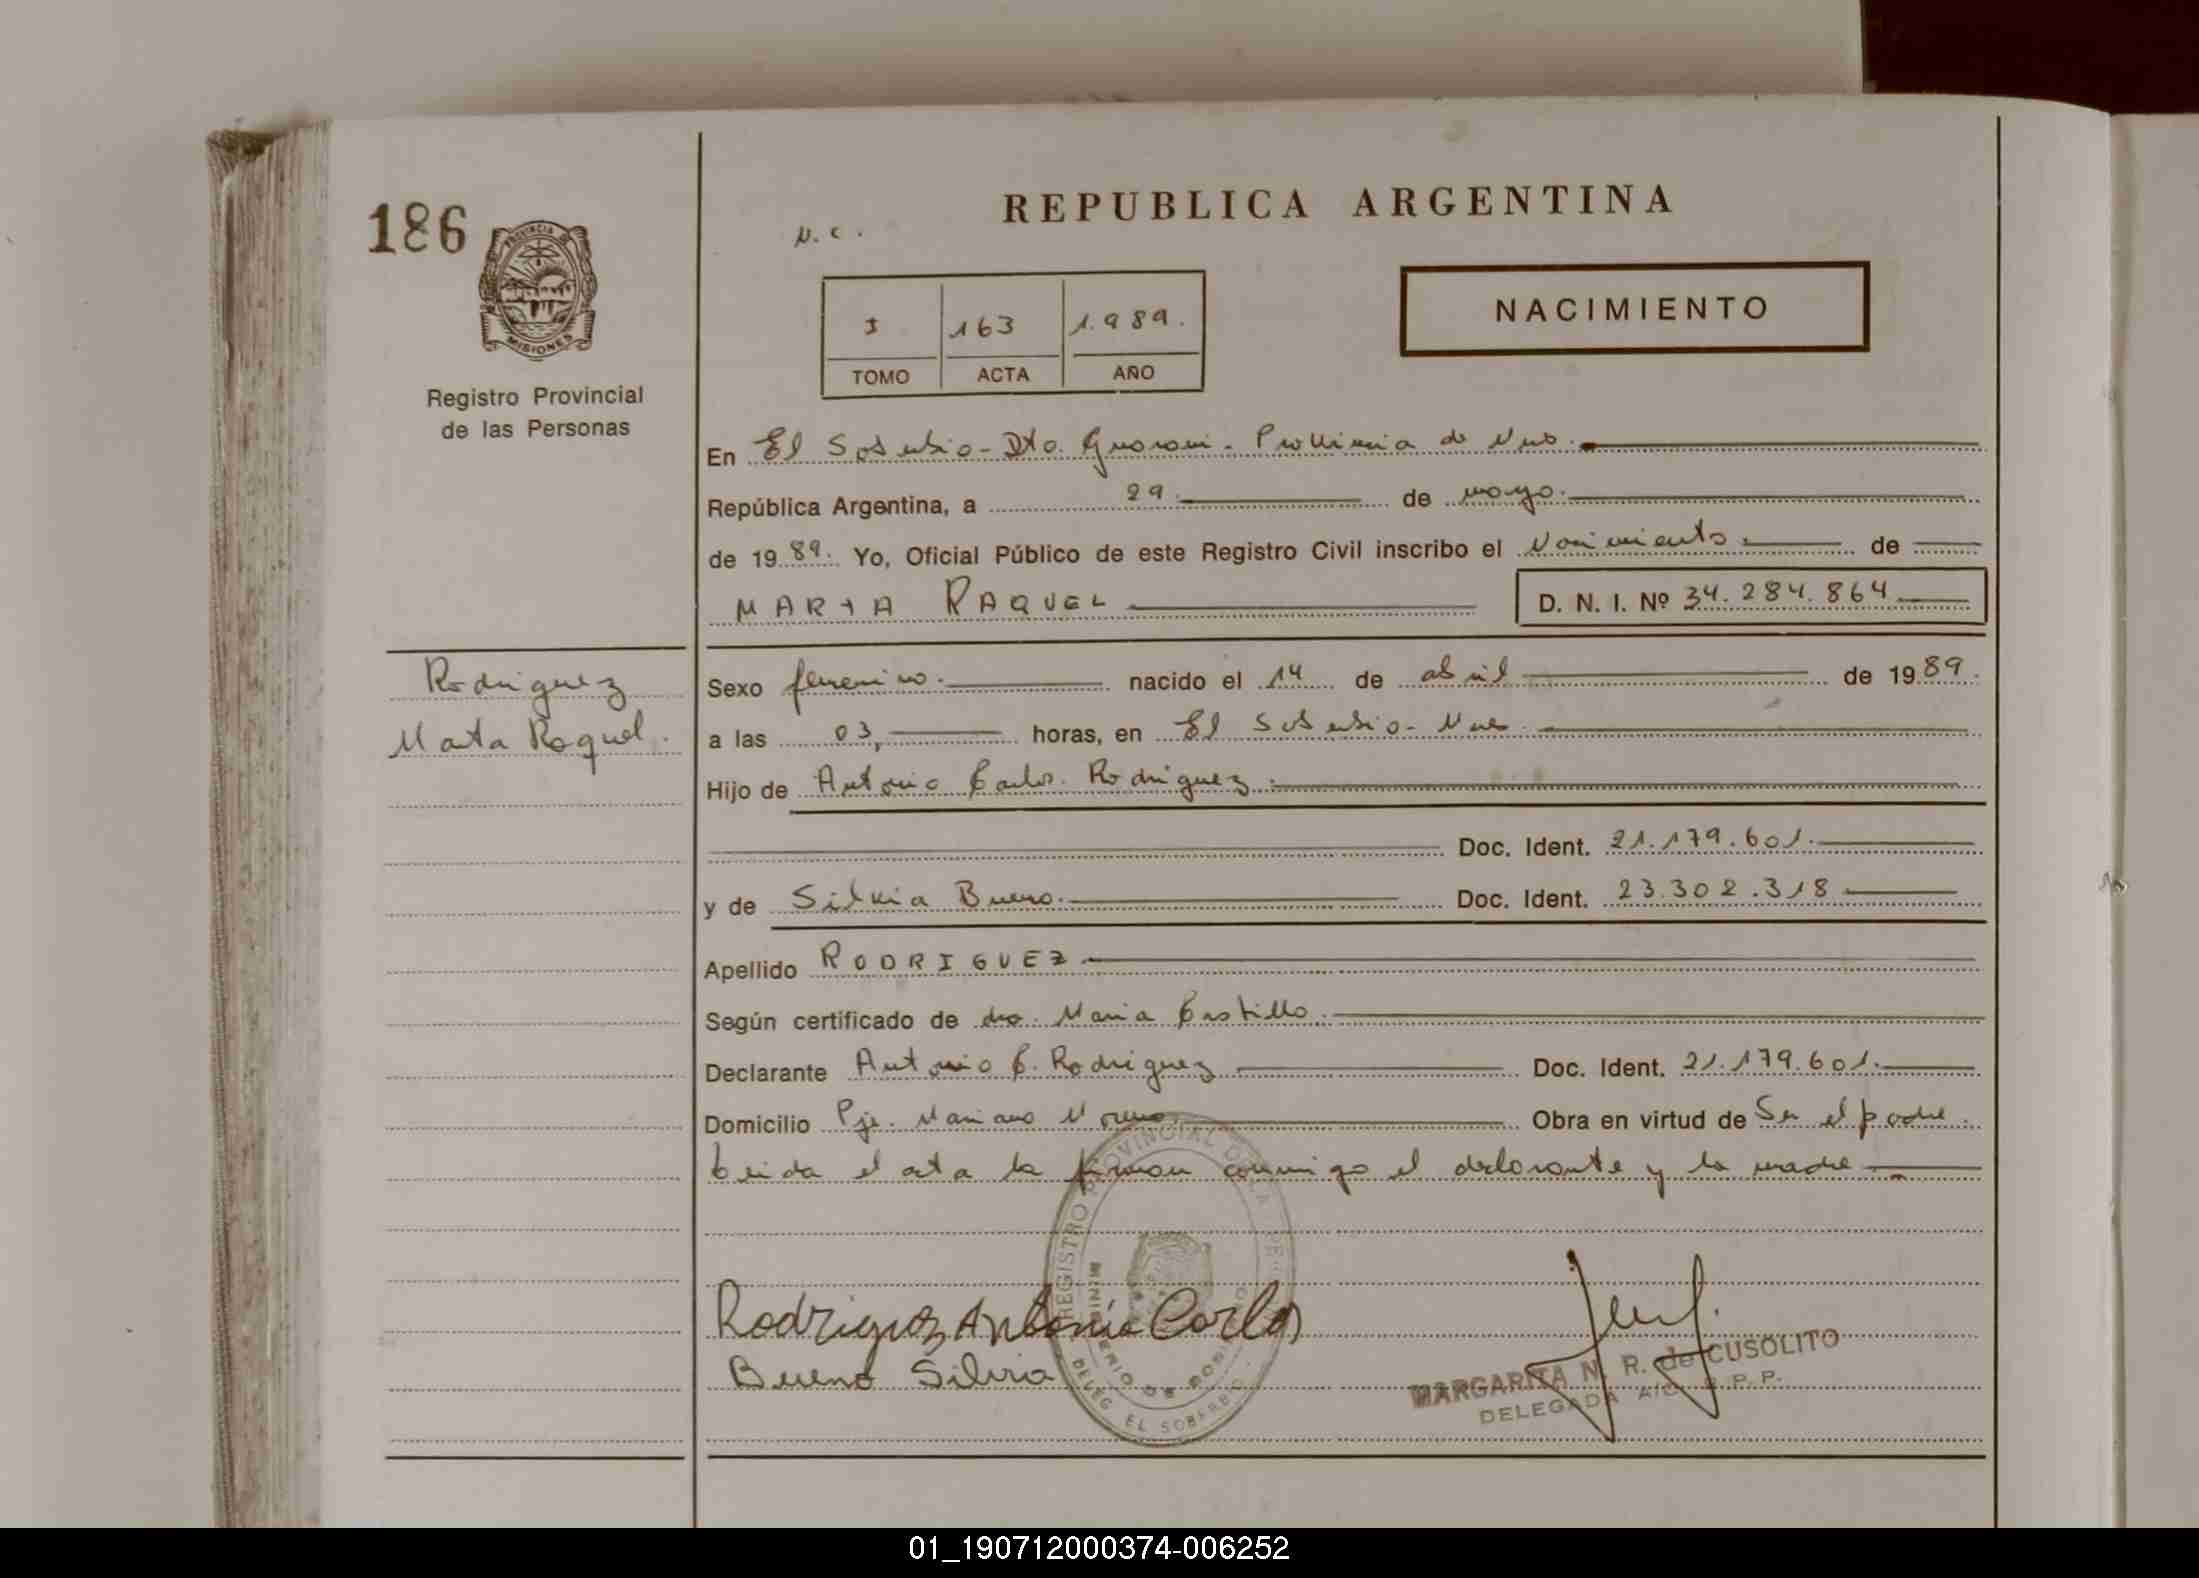 186
PROVINCIA DE
MISIONES
Registro Provincial
de las Personas
REPUBLICA ARGENTINA
N.C.
NACIMIENTO
I 163 1.989.
TOMO ACTA AÑO
En El Soberbio - Dto. Guarani - Provincia de Mnes.
República Argentina, a 29 de mayo.
de 1989. Yo, Oficial Público de este Registro Civil inscribo el Nacimiento de
MARIA RAQUEL
D. N. I. Nº 34.284.864
Rodriguez
Maria Raquel.
Sexo femenino. nacido el 14 de abril de 1989.
a las 03, horas, en El Soberbio - Mnes.
Hijo de Antonio Carlos Rodriguez.
Doc. Ident. 21.179.601.
y de Silvia Bueno. Doc. Ident. 23.302.318
Apellido RODRIGUEZ
Según certificado de dra. Maria Castillo.
Declarante Antonio C. Rodriguez Doc. Ident. 21.179.601.
Domicilio Pje. Mariano Moreno Obra en virtud de Ser el padre.
Leida el acta la firman conmigo el declarante y la madre
REGISTRO PROVINCIAL DE LA
MINISTERIO DE GOBIERNO
DELEG. EL SOBERBIO
Rodriguez Antonio Carlos
Bueno Silvia
MARGARITA N. R. de CUSOLITO
DELEGADA A/C. R.P.P.
01_190712000374-006252